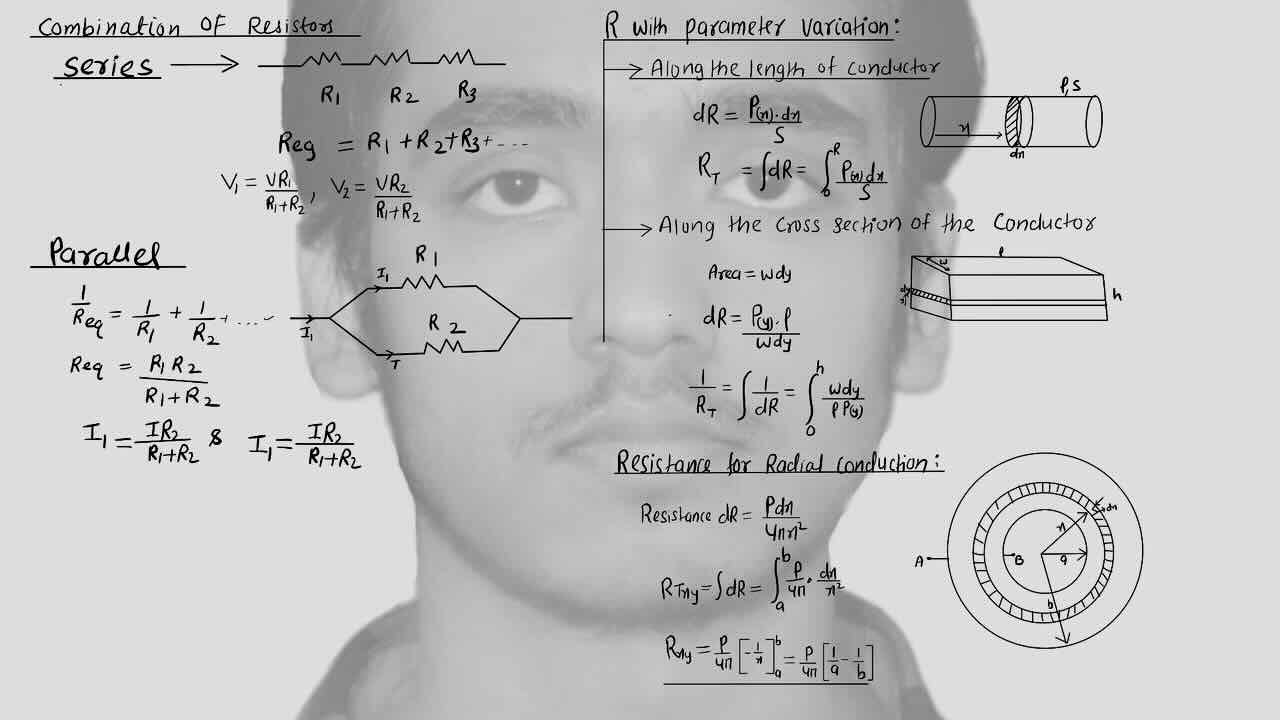 Combination OF Resistors
Series →
R1 R2 R3
Req = R1 + R2 + R3 + - - -
V1 = VR1/R1+R2 , V2 = VR2/R1+R2
Parallel
1/Req = 1/R1 + 1/R2 + - - -
Req = R1 R2/R1 + R2
I1 = IR2/R1+R2 & I1 = IR2/R1+R2
I1
I1 R1
R2
I
R with parameter variation:
→ Along the length of conductor
dR = ρ(x)·dx/S
RT = ∫dR = ∫₀ᴿ ρ(x)dx/S
ρ,S
x
dx
→ Along the Cross section of the Conductor
Area = wdy
dR = ρ(y)·l/wdy
1/RT = ∫ 1/dR = ∫₀ʰ wdy/l ρ(y)
l
w
h
Resistance for Radial conduction:
Resistance dR = ρdx/4πx²
RTxy = ∫dR = ∫ₐᵇ ρ/4π · dx/x²
Rxy = ρ/4π [-1/x]ₐᵇ = ρ/4π [1/a - 1/b]
A
B
x
dx
a
b